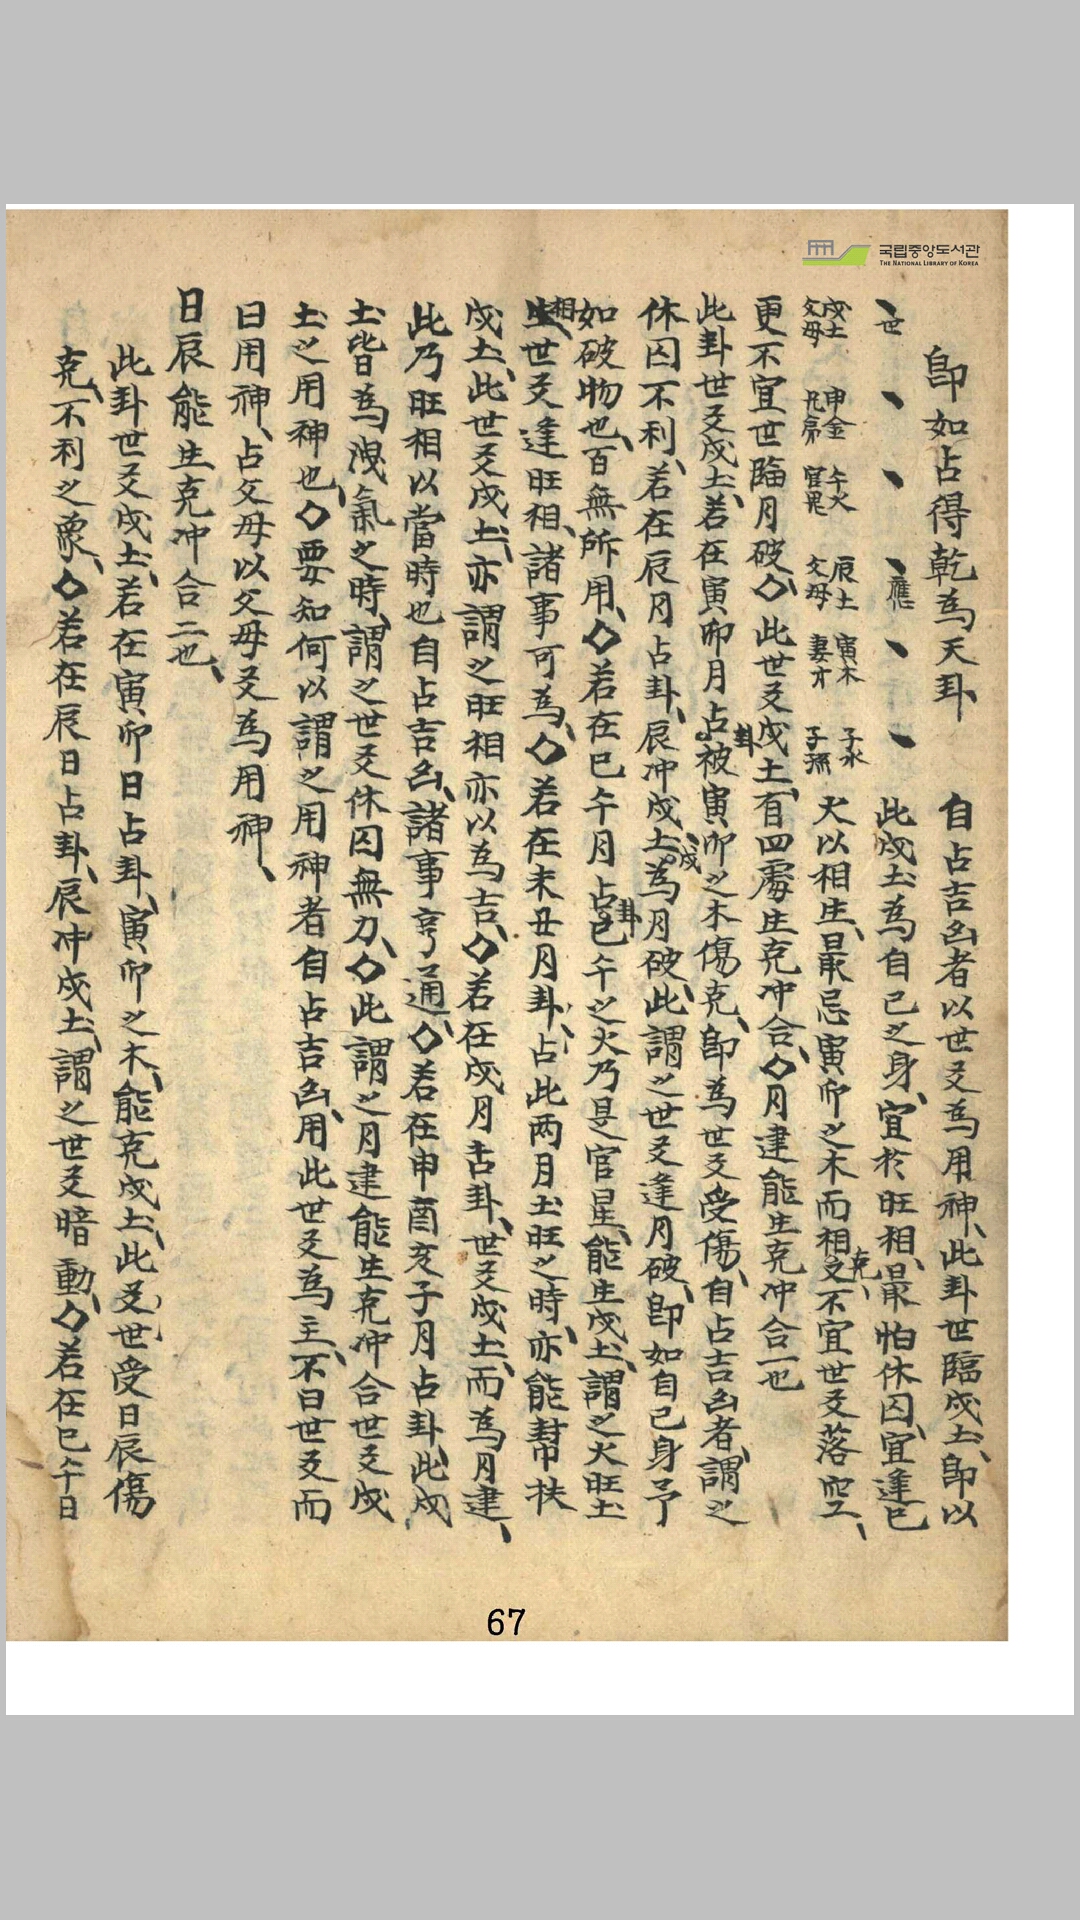 국립중앙도서관
THE NATIONAL LIBRARY OF KOREA
卽如占得乾為天卦
自占吉凶者以世爻為用神、此卦世臨戌土、卽以
世 應
此戌土為自己之身、宜於旺相、最怕休囚、宜逢巳
戌土 申金 午火 辰土 寅木 子水
父母 兄弟 官鬼 父母 妻才 子孫
火以相生、最忌寅卯之木而相克之不宜世爻落空、
更不宜世臨月破◇此世爻戌土、有四處生克冲合、◇月建能生克冲合一也
此卦世爻戌土、若在寅卯月占卦被寅卯之木傷克、卽為世爻受傷、自占吉凶者、謂之
休囚不利、若在辰月占卦、辰冲戌土、戌為月破、此謂之世爻逢月破、卽如自己身子
如破物也、百無所用、◇若在巳午月占卦巳午之火乃是官星、能生戌土、謂之火旺土
相生、世爻逢旺相、諸事可為、◇若在未丑月卦、占此两月土旺之時、亦能幇扶
戌土、此世爻戌土、亦謂之旺相亦以為吉、◇若在戌月占卦、世爻戌土、而為月建、
此乃旺相以當時也自占吉凶、諸事亨通、◇若在申酉亥子月占卦、此戌
土、皆為洩氣之時、謂之世爻休囚無力、◇此謂之月建能生克冲合世爻戌
土之用神也、◇要知何以謂之用神者自占吉凶、用此世爻為主、不曰世爻而
曰用神、占父母以父母爻為用神、
日辰能生克冲合二也、
此卦世爻戌土、若在寅卯日占卦、寅卯之木、能克戌土、此爻世受日辰傷
克、不利之象、◇若在辰日占卦、辰冲戌土、謂之世爻暗動、◇若在巳午日
67